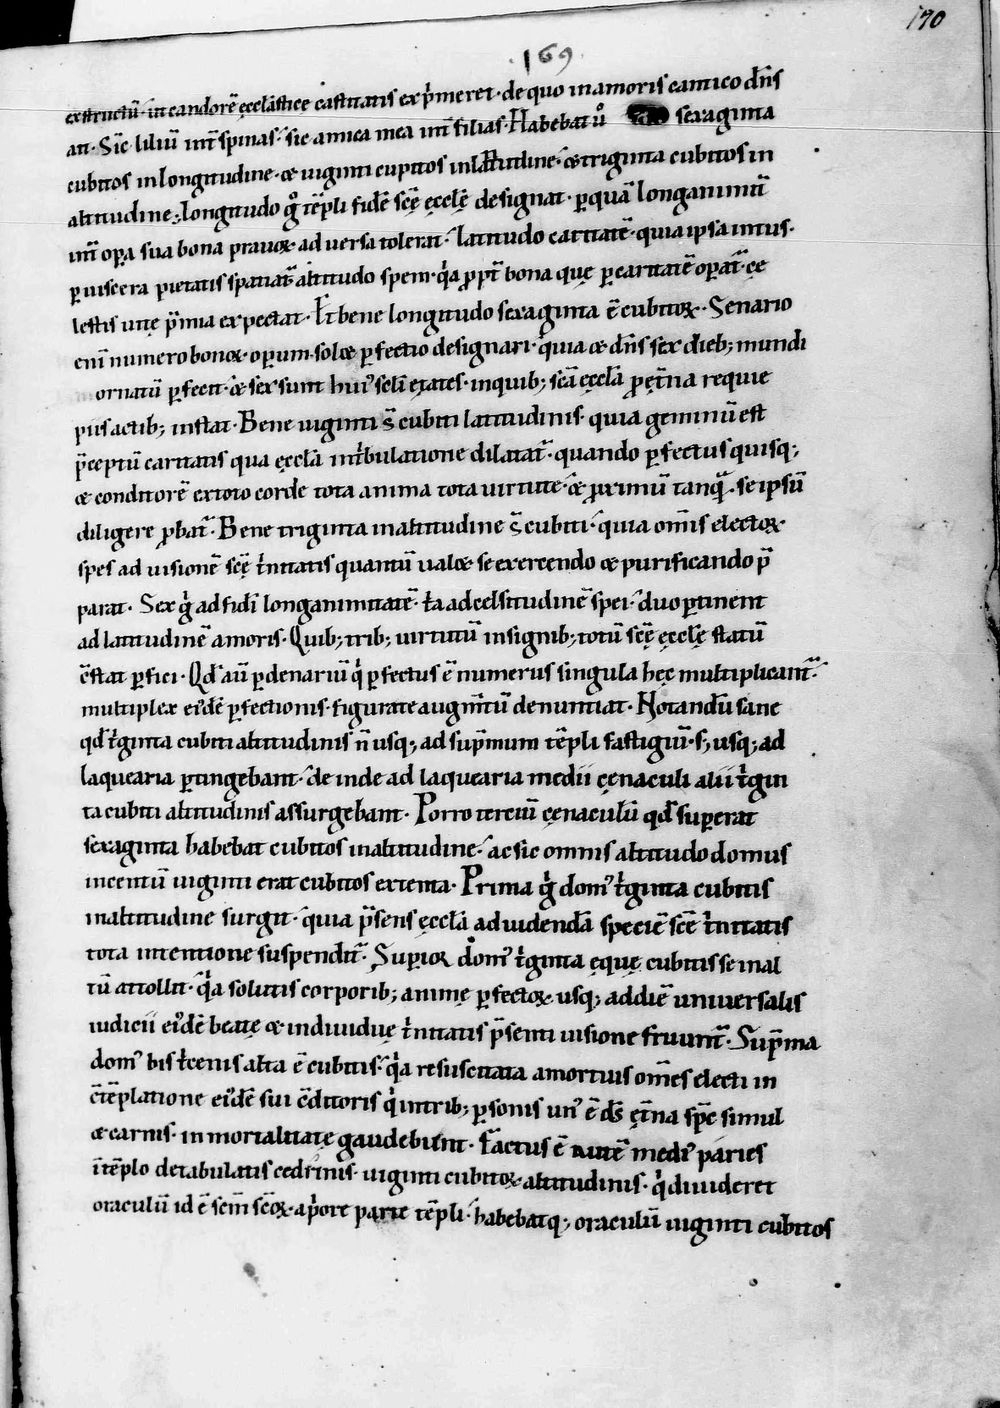 170
169
exstructũ· ut candorẽ ęcclesticę castitatis exp̃meret· de quo in amoris cantico dñs
ait· Sic liliũ int̃ spinas· sic amica mea int̃ filias· Habebat uͦ sexaginta
cubitos in longitudine· & uiginti cupitos in latitudine· & triginta cubitos in
altitudine; Longitudo g̊ tẽpli fidẽ scę̃ ęcclę̃ designat· ꝑ quã longanimit̃
int̃ oꝑa sua bona prauoꝝ aduersa tolerat· latitudo caritatẽ· quia ipsa intus·
ꝑ uiscera pietatis spatiat᷑ altitudo spem· q̇a ꝓpt̃ bona quę ꝑ caritatẽ oꝑat᷑ cę
lestis uitę p̃mia expectat· Et bene longitudo sexaginta ẽ cubitoꝝ· Senario
eni numero bonoꝝ· oꝑum· sol& ꝑfectio designari· quia & dñs sex dieb; mundi
ornatũ ꝑfecit· & sex sunt hui᾽ scłi ętates· in quib; scã ęccła ꝓ ęt̃na requie
piis actib; instat· Bene uiginti s̃ cubiti latitudinis· quia geminũ est
p̃ceptũ caritatis qua ęccła in t̃bulatione dilatat᷑· quando ꝑfectus quisq;
& conditorẽ ex toto corde tota anima tota uirtute· & ꝓximũ tanquã· se ipsũ
diligere ꝓbat᷑· Bene triginta in altitudine s̃ cubiti· quia omis electoꝝ·
spes ad uisionẽ scę̃ t̃nitatis quantũ ual& se exercendo & purificando p̃
parat· Sex g̊ ad fidei longanimitatẽ· t̃a ad celsitudinẽ spei· duo ꝑtinent
ad latitudinẽ amoris· Quib; trib; uirtutũ insignib; totũ scę̃ ęcclę̃ statũ
c̃stat ꝑfici· Qd̃ aũ ꝑ denariũ q̇ ꝑfectus ẽ numerus singula hęc multiplicant᷑·
multiplex ei᾽dẽ ꝑfectionis· figurate augm̃tũ denuntiat· Notandũ sane
qd̃ t̃ginta cubiti altitudinis ñ usq; ad sup̃mum tẽpli fastigiũ· s; usq; ad
laquearia ꝑtingebant· de inde ad laquearia medii cęnaculi alii t̃gin
ta cubiti altitudinis assurgebant· Porro terciũ cęnaculũ qd̃ suꝑerat
sexaginta habebat cubitos in altitudine· ac sic omnis altitudo domus
in centũ uiginti erat cubitos extenta· Prima g̊ dom᾽ t̃ginta cubitis
in altitudine surgit· quia p̃sens ęccła ad uidendã speciẽ scę̃ t̃nitatis
tota intentione suspendit᷑· Suꝑior dom᾽ t̃ginta ęquę cubitis se in al
tũ attollit· q̇a solutis corporib; animę ꝑfectoꝝ usq; ad diẽ uniuersalis
iudicii ei᾽dẽ beatę & indiuiduę t̃nitatis p̃senti uisione fruunt᷑· Sup̃ma
dom᾽ bis t̃cenis alta ẽ cubitis· q̇a resuscitata a mortuis om̃es electi in
c̃tẽplatione ei᾽dẽ sui c̃ditoris q̇ in trib; ꝑsonis un᾽ ẽ dš ęt̃na spẽ simul
& carnis· inmortalitatę gaudebunt· Factus ẽ autẽ medi᾽ paries
ĩ tẽplo de tabulatis cedrinis· uiginti cubitoꝝ altitudinis· q̇ diuideret
oraculũ id ẽ scm̃ scõꝝ· a p̃ore parte tẽpli· habebatq; oraculũ uiginti cubitos